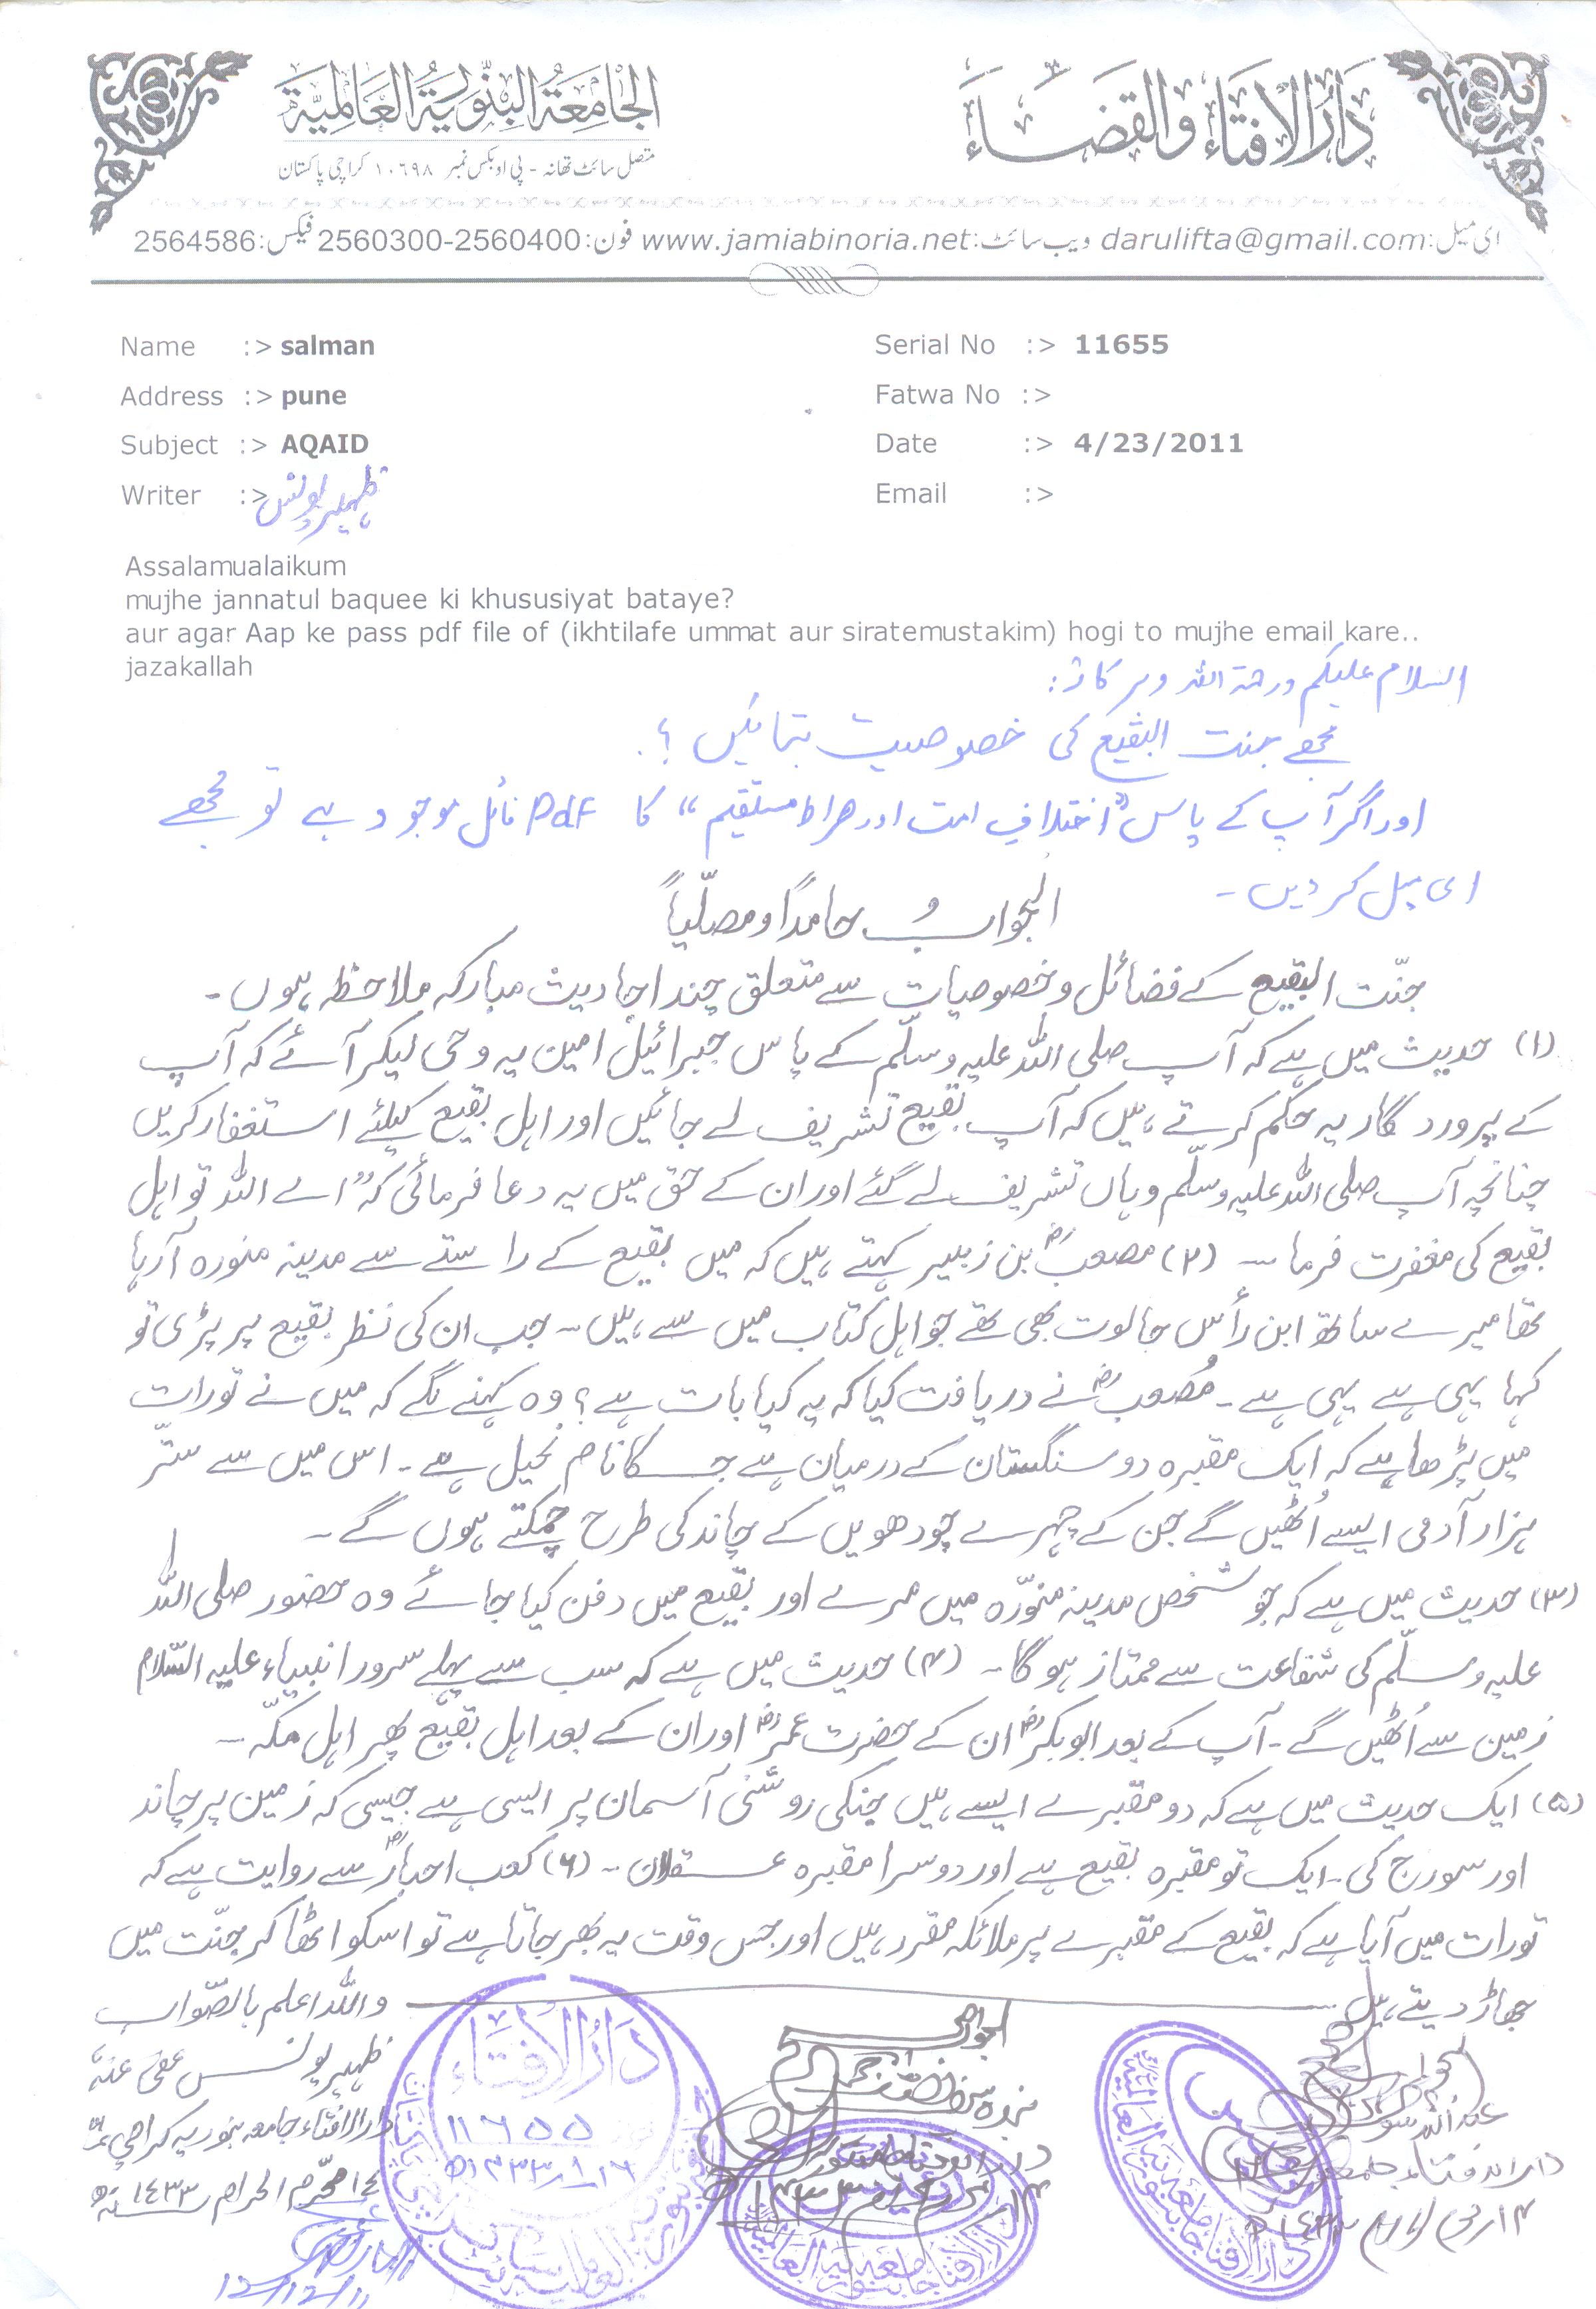 دَارُالاِفتَاء وَالقَضَاء
الجَامِعَةُ البِنّورِيَةُ العَالمِيَّة
متصل سائٹ تھانہ - پی او بکس نمبر ۱۰۶۹۸ کراچی پاکستان
ای میل: darulifta@gmail.com ویب سائٹ: www.jamiabinoria.net فون: 2560300-2560400 فیکس: 2564586
Name :> salman
Serial No :> 11655
Address :> pune
Fatwa No :>
Subject :> AQAID
Date :> 4/23/2011
Writer :> ظہیر یونس
Email :>
Assalamualaikum
mujhe jannatul baquee ki khususiyat bataye?
aur agar Aap ke pass pdf file of (ikhtilafe ummat aur siratemustakim) hogi to mujhe email kare..
jazakallah
السلام علیکم ورحمۃ اللہ وبرکاتہ:
مجھے جنت البقیع کی خصوصیت بتائیں؟
اور اگر آپ کے پاس "اختلافِ امت اور صراط مستقیم" کا Pdf فائل موجود ہے تو مجھے
ای میل کر دیں۔
الجوابُ حامداً ومصلّیاً
جنّت البقیع کے فضائل وخصوصیات سے متعلق چند احادیث مبارکہ ملاحظہ ہوں۔
(۱) حدیث میں ہے کہ آپ صلی اللہ علیہ وسلّم کے پاس جبرائیل امین یہ وحی لیکر آئے کہ آپ
کے پروردگار یہ حکم کرتے ہیں کہ آپ بقیع تشریف لے جائیں اور اہل بقیع کیلئے استغفار کریں
چنانچہ آپ صلی اللہ علیہ وسلّم وہاں تشریف لے گئے اور ان کے حق میں یہ دعا فرمائی کہ "اے اللہ تو اہل
بقیع کی مغفرت فرما ۔ (۲) مصعبؓ بن زبیر کہتے ہیں کہ میں بقیع کے راستے سے مدینہ منورہ آرہا
تھا میرے ساتھ ابن رأس جالوت بھی تھے جو اہل کتاب میں سے ہیں ۔ جب ان کی نظر بقیع پر پڑی تو
کہا یہی ہے یہی ہے ۔ مُصعبؓ نے دریافت کیا کہ یہ کیا بات ہے؟ وہ کہنے لگے کہ میں نے تورات
میں پڑھا ہے کہ ایک مقبرہ دو سنگستان کے درمیان ہے جس کا نام نخیل ہے ۔ اس میں سے ستّر
ہزار آدمی ایسے اُٹھیں گے جن کے چہرے چودھویں کے چاند کی طرح چمکتے ہوں گے ۔
(۳) حدیث میں ہے کہ جو شخص مدینہ منوّرہ میں مرے اور بقیع میں دفن کیا جائے وہ حضور صلی اللہ
علیہ وسلّم کی شفاعت سے ممتاز ہوگا ۔ (۴) حدیث میں ہے کہ سب سے پہلے سرور انبیاء علیہ السّلام
زمین سے اُٹھیں گے ۔ آپ کے بعد ابوبکرؓ ان کے حضرت عمرؓ اور ان کے بعد اہل بقیع پھر اہل مکّہ ۔
(۵) ایک حدیث میں ہے کہ دو مقبرے ایسے ہیں جنکی روشنی آسمان پر ایسی ہے جیسی کہ زمین پر چاند
اور سورج کی ۔ ایک تو مقبرہ بقیع ہے اور دوسرا مقبرہ عسقلان ۔ (۶) کعب احبارؓ سے روایت ہے کہ
تورات میں آیا ہے کہ بقیع کے مقبرے پر ملائکہ مقرر ہیں اور جس وقت یہ بھر جاتا ہے تو اسکو اٹھا کر جنّت میں
جھاڑ دیتے ہیں
واللہ اعلم بالصّواب
ظہیر یونس عفی عنہ
دارالافتاء جامعہ بنوریہ کراچی
محرّم الحرام ۱٤۳۳ھ
دَارُالاِفتَاء
۱۱۶۵۵